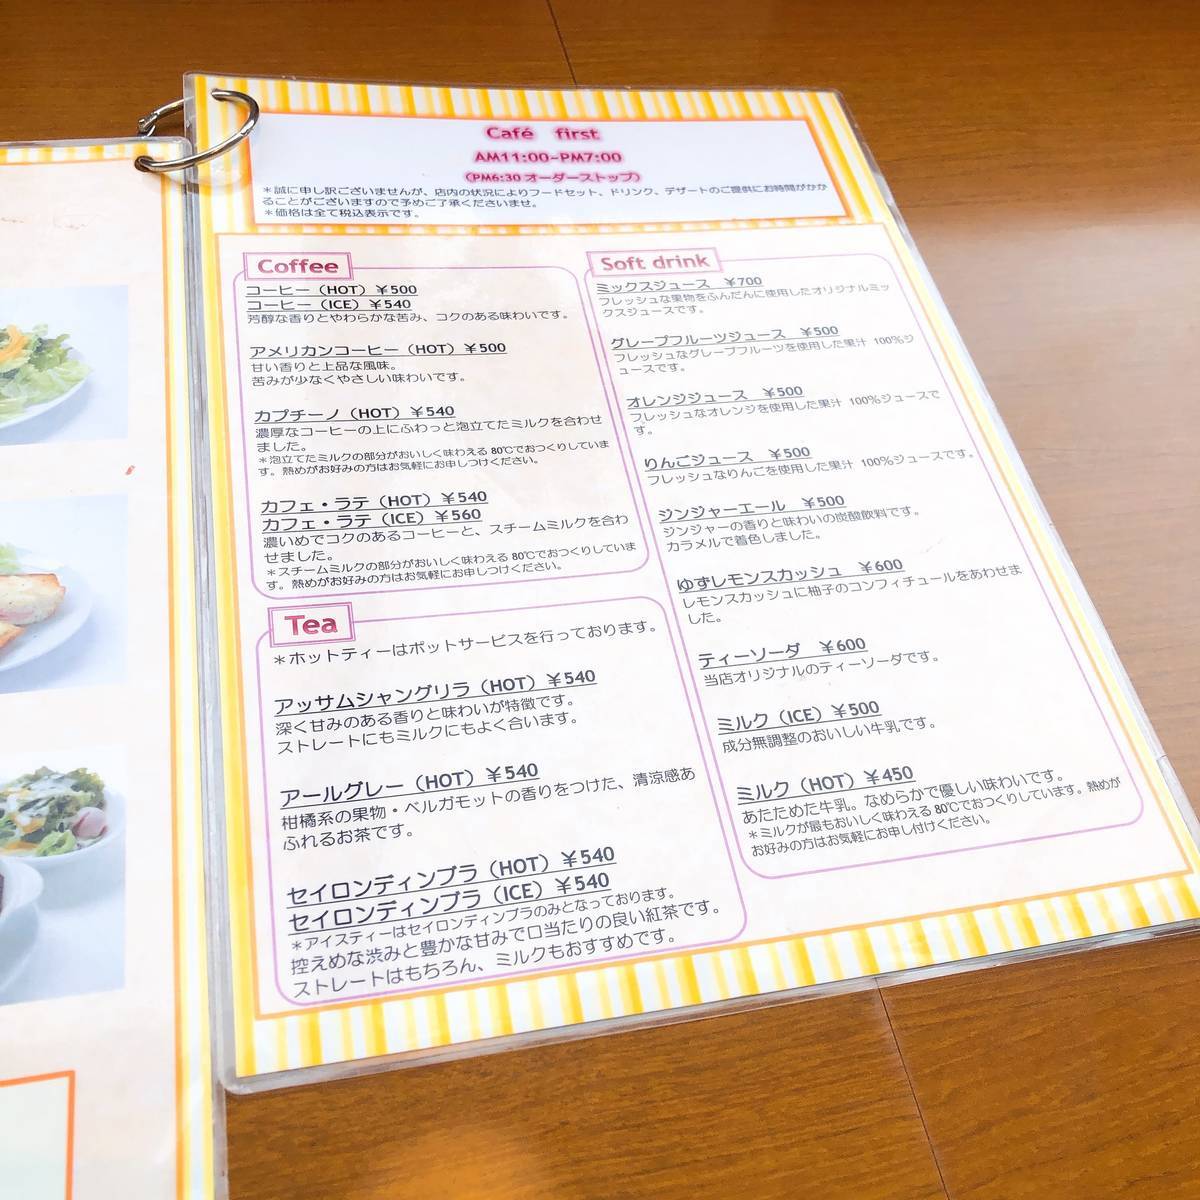 Café first
AM11:00~PM7:00
（PM6:30 オーダーストップ）
＊誠に申し訳ございませんが、店内の状況によりフードセット、ドリンク、デザートのご提供にお時間がかか
ることがございますので予めご了承くださいませ。
＊価格は全て税込表示です。
Coffee
コーヒー（HOT）￥500
コーヒー（ICE）￥540
芳醇な香りとやわらかな苦み、コクのある味わいです。
アメリカンコーヒー（HOT）￥500
甘い香りと上品な風味。
苦みが少なくやさしい味わいです。
カプチーノ（HOT）￥540
濃厚なコーヒーの上にふわっと泡立てたミルクを合わせ
ました。
＊泡立てたミルクの部分がおいしく味わえる 80℃でおつくりしていま
す。熱めがお好みの方はお気軽にお申しつけください。
カフェ・ラテ（HOT）￥540
カフェ・ラテ（ICE）￥560
濃いめでコクのあるコーヒーと、スチームミルクを合わ
せました。
＊スチームミルクの部分がおいしく味わえる 80℃でおつくりしていま
す。熱めがお好みの方はお気軽にお申しつけください。
Tea
＊ホットティーはポットサービスを行っております。
アッサムシャングリラ（HOT）￥540
深く甘みのある香りと味わいが特徴です。
ストレートにもミルクにもよく合います。
アールグレー（HOT）￥540
柑橘系の果物・ベルガモットの香りをつけた、清涼感あ
ふれるお茶です。
セイロンディンブラ（HOT）￥540
セイロンディンブラ（ICE）￥540
＊アイスティーはセイロンディンブラのみとなっております。
控えめな渋みと豊かな甘みで口当たりの良い紅茶です。
ストレートはもちろん、ミルクもおすすめです。
Soft drink
ミックスジュース ￥700
フレッシュな果物をふんだんに使用したオリジナルミッ
クスジュースです。
グレープフルーツジュース ￥500
フレッシュなグレープフルーツを使用した果汁 100％ジ
ュースです。
オレンジジュース ￥500
フレッシュなオレンジを使用した果汁 100％ジュースで
す。
りんごジュース ￥500
フレッシュなりんごを使用した果汁 100％ジュースです。
ジンジャーエール ￥500
ジンジャーの香りと味わいの炭酸飲料です。
カラメルで着色しました。
ゆずレモンスカッシュ ￥600
レモンスカッシュに柚子のコンフィチュールをあわせま
した。
ティーソーダ ￥600
当店オリジナルのティーソーダです。
ミルク（ICE）￥500
成分無調整のおいしい牛乳です。
ミルク（HOT）￥450
あたためた牛乳。なめらかで優しい味わいです。
＊ミルクが最もおいしく味わえる 80℃でおつくりしています。熱めが
お好みの方はお気軽にお申し付けください。